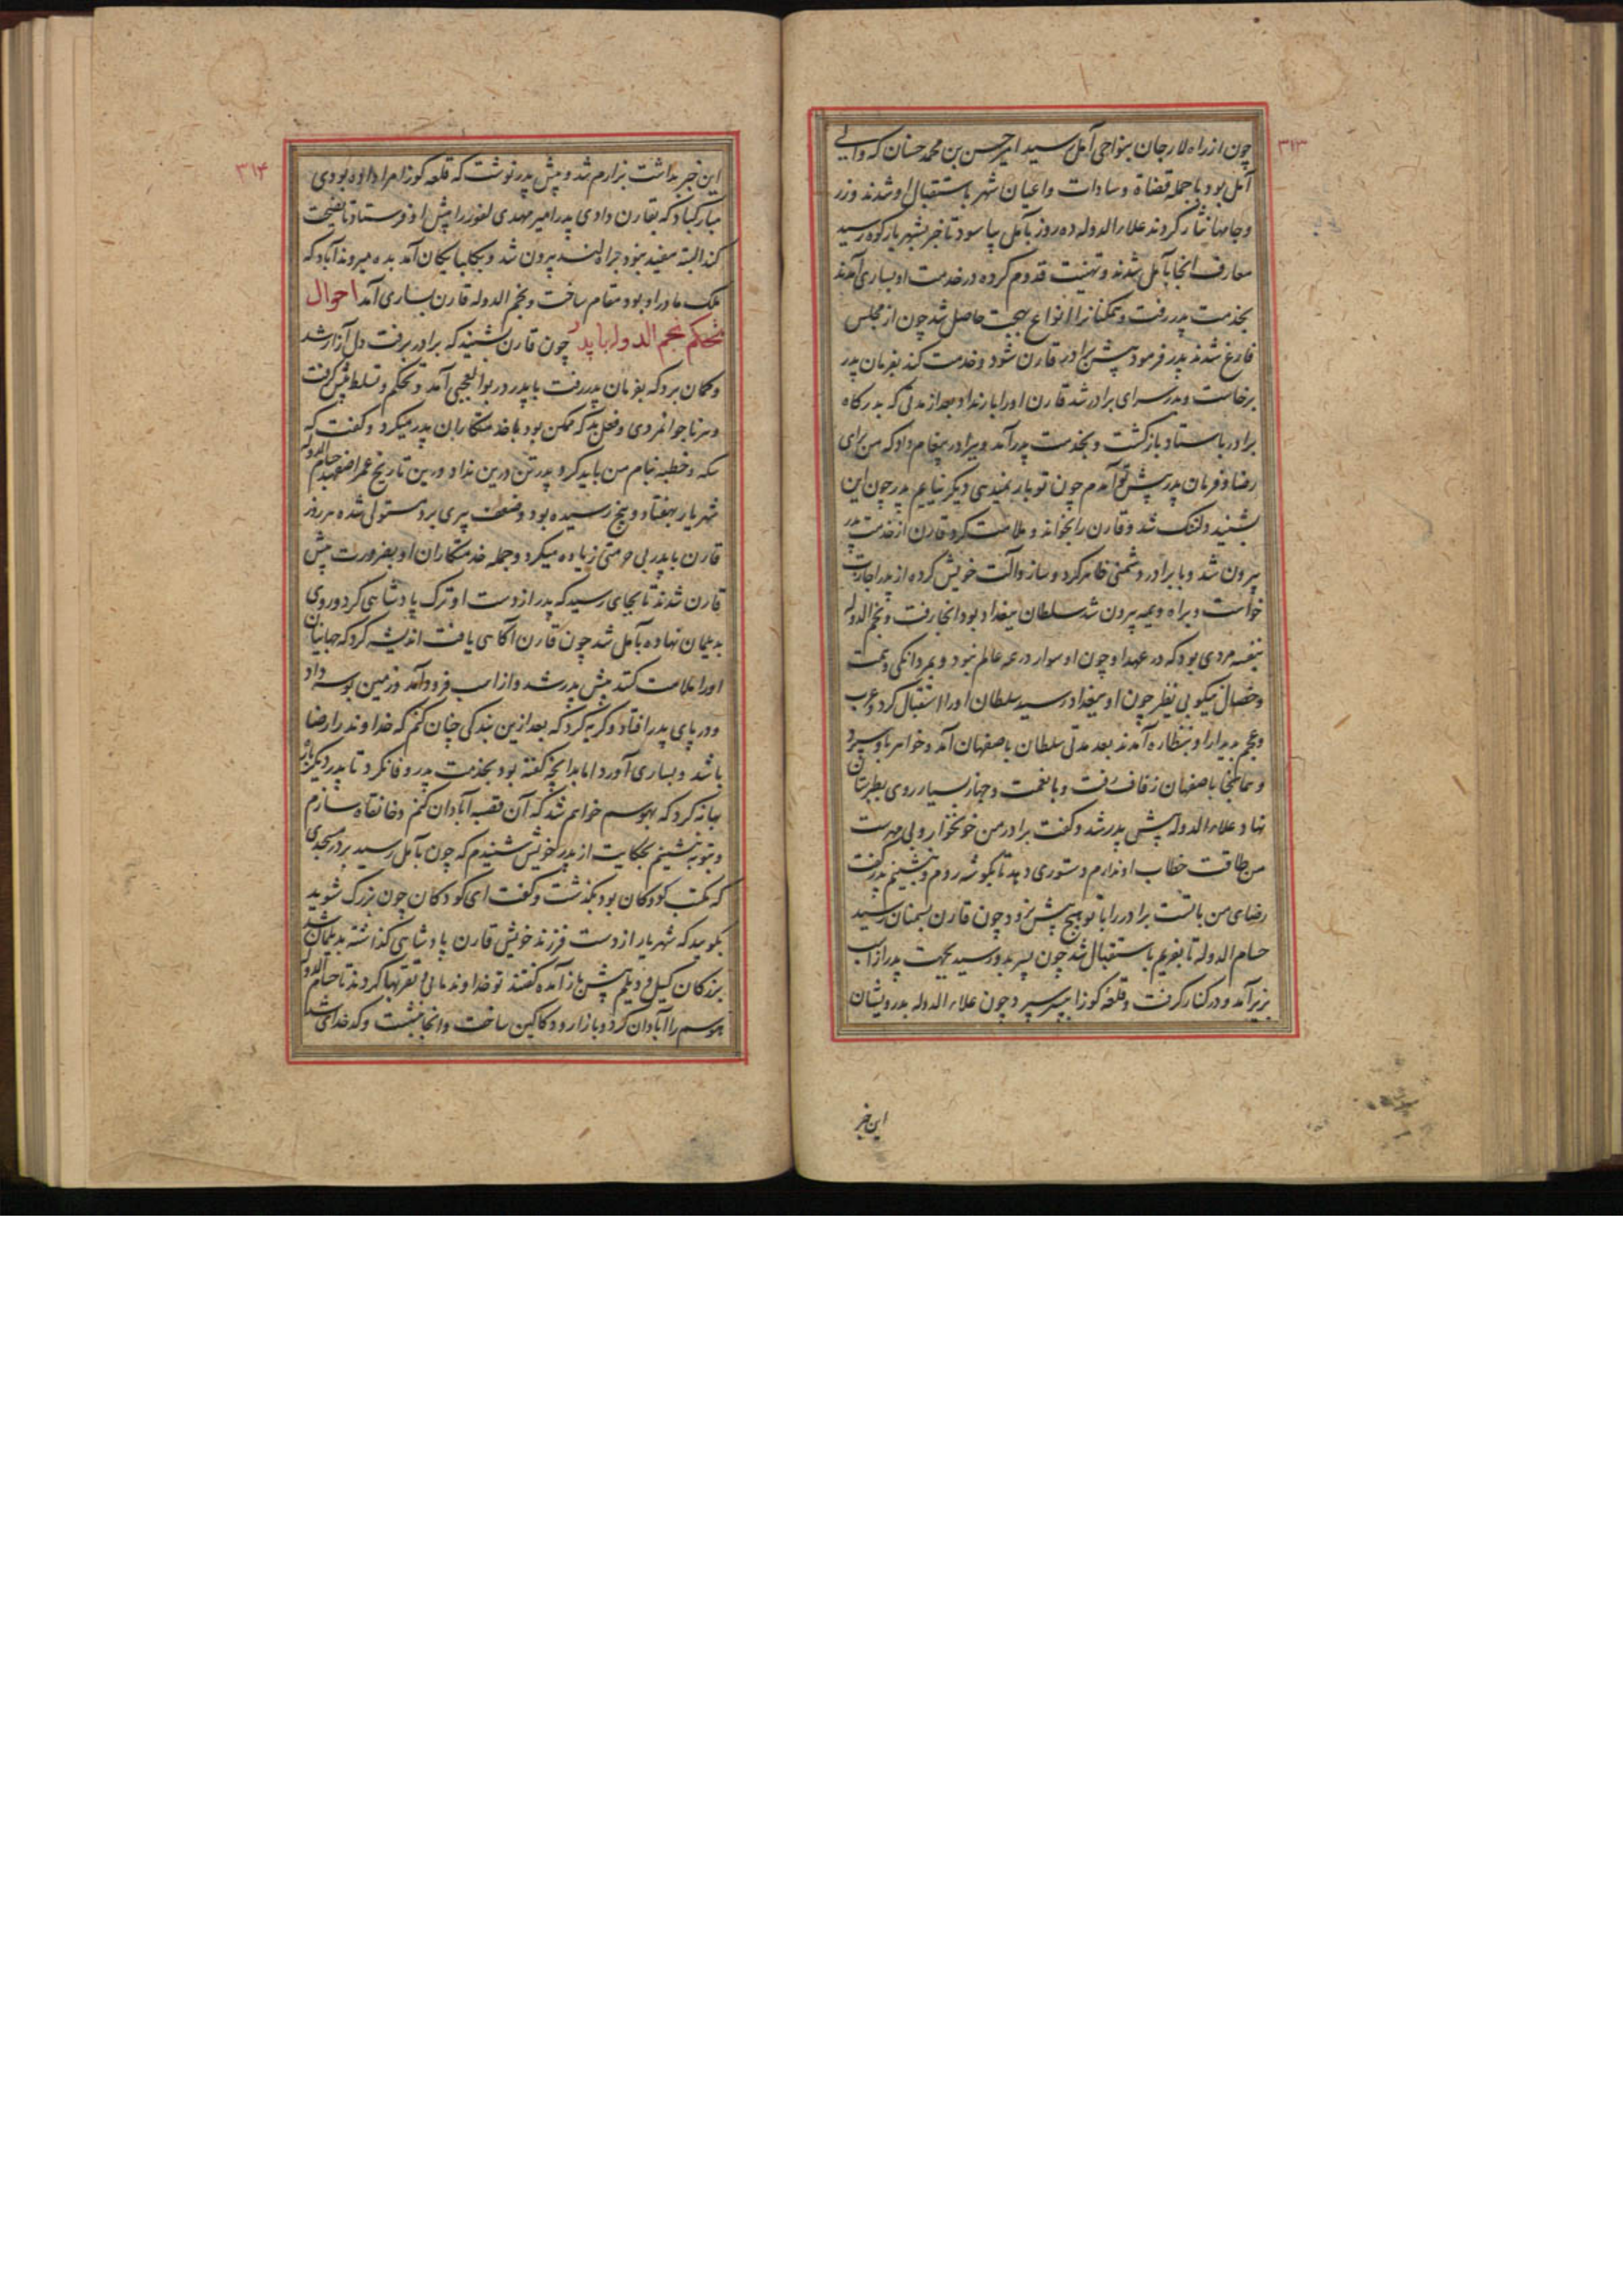 ۳۱۳
چون از راه لارجان بنواحی آمل رسید امیر حسن بن محمد حسنان که والی
آمل بود با جمله قضاة و سادات و اعیان شهر باستقبال او شدند و زر
و جامها نثار کردند علاء الدوله ده روز بآمل بیاسود تا خبر بشهر بازکوه رسید
معارف آنجا بآمل شدند و تهنیت قدوم کرده در خدمت او بساری آمدند
بخدمت پدر رفت و همکنانرا انواع بهجت حاصل شد چون از مجلس
فارغ شدند پدر فرمود پیش برادر قارن شود و خدمت کند بفرمان پدر
برخاست و بدر سرای برادر شد قارن او را بار نداد بعد از مدتی که بدرکاه
برادر باستاد بازکشت و بخدمت پدر آمد و برادر پیغام داد که من برای
رضا و فرمان پدر پیش تو آمدم چون تو بار نمیدهی دیکر نیایم پدر چون این
بشنید دلتنک شد و قارن را بخواند و ملامت کرد قارن از خدمت پدر
بیرون شد و با برادر دشمنی ظاهر کرد و ساز و آلت خویش کرده از پدر اجازت
خواست و براه ویمه بیرون شد سلطان ببغداد بود آنجا رفت و نجم الدوله
بنفسه مردی بود که در عهد او چون او سوار در همه عالم نبود و بمردانکی و همت
و خصال نیکو بی نظیر چون او ببغداد رسید سلطان او را استقبال کرد و عرب
و عجم بدیدار او بنظاره آمدند بعد مدتی سلطان باصفهان آمد و خواهر باو سپرد
و هم آنجا باصفهان زفاف رفت و با نعمت و جهاز بسیار روی بطبرستان
نهاد علاء الدوله پیش پدر شد و کفت برادر من خونخوار و بی مهرست
من طاقت خطاب او ندارم دستوری دهد تا بکوشه روم و بنشینم پدر کفت
رضای من بایست برادر را با تو هیچ پیش نرود چون قارن بسمنان رسید
حسام الدوله تا بفریم باستقبال شد چون پسر بدو رسید بجهت پدر از اسب
بزیر آمد و در کنار کرفت و قلعه کوزا بپسر سپرد چون علاء الدوله بدرویشان
این خبر
۳۱۴
این خبر بداشت بزارم شد و پیش پدر نوشت که قلعه کوزا مرا داده بودی
مبارکباد که بقارن دادی پدر امیر مهدی لفور را پیش او فرستاد تا نصیحت
کند البته مفید نبود براه لند بیرون شد و بکلبایکان آمد بده میروندآباد که
ملک مادر او بود مقام ساخت و نجم الدوله قارن بساری آمد احوال
تحکم نجم الدوله با پدر چون قارن بشنید که برادر برفت دل آزار شد
و کمان برد که بفرمان پدر رفت با پدر در بوالعجبی آمد و تحکم و تسلط پیش کرفت
و هر ناجوانمردی و فعل بد که ممکن بود با خدمتکاران پدر میکرد و کفت که
سکه و خطبه بنام من باید کرد و پدر تن درین نداد و درین تاریخ عمر اصفهبد حسام الدوله
شهریار بهفتاد و پنج رسیده بود و ضعف پیری برو مستولی شده هر روز
قارن با پدر بی حرمتی زیاده میکرد و جمله خدمتکاران او بضرورت پیش
قارن شدند تا بجای رسید که پدر از دست او ترک پادشاهی کرد و روی
بدیلمان نهاده بآمل شد چون قارن آکاهی یافت اندیشه کرد که جهانیان
او را ملامت کنند پیش پدر شد و از اسب فرود آمد و زمین بوسه داد
و در پای پدر افتاد و کریه کرد که بعد ازین بندکی چنان کنم که خداوند را رضا
باشد و بساری آورد اما بدانچه کفته بود بخدمت پدر وفا نکرد تا پدر دیکر بار
بهانه کرد که بهوسم خواهم شد که آن قصبه آبادان کنم و خانقاه سازم
و بتوبه بنشینم بحکایت از پدر خویش شنیدم که چون بآمل رسید بر در مسجدی
که مکتب کودکان بود بکذشت و کفت ای کودکان چون بزرک شوید
بکویید که شهریار از دست فرزند خویش قارن پادشاهی کذاشته بدیلمان شد
بزرکان کیل و دیلم پیش باز آمده کفتند تو خداوند مائی تقربها کردند تا حسام الدوله
هوسم را آبادان کرد و بازار و دکاکین ساخت و آنجا بنشست و کدخدای